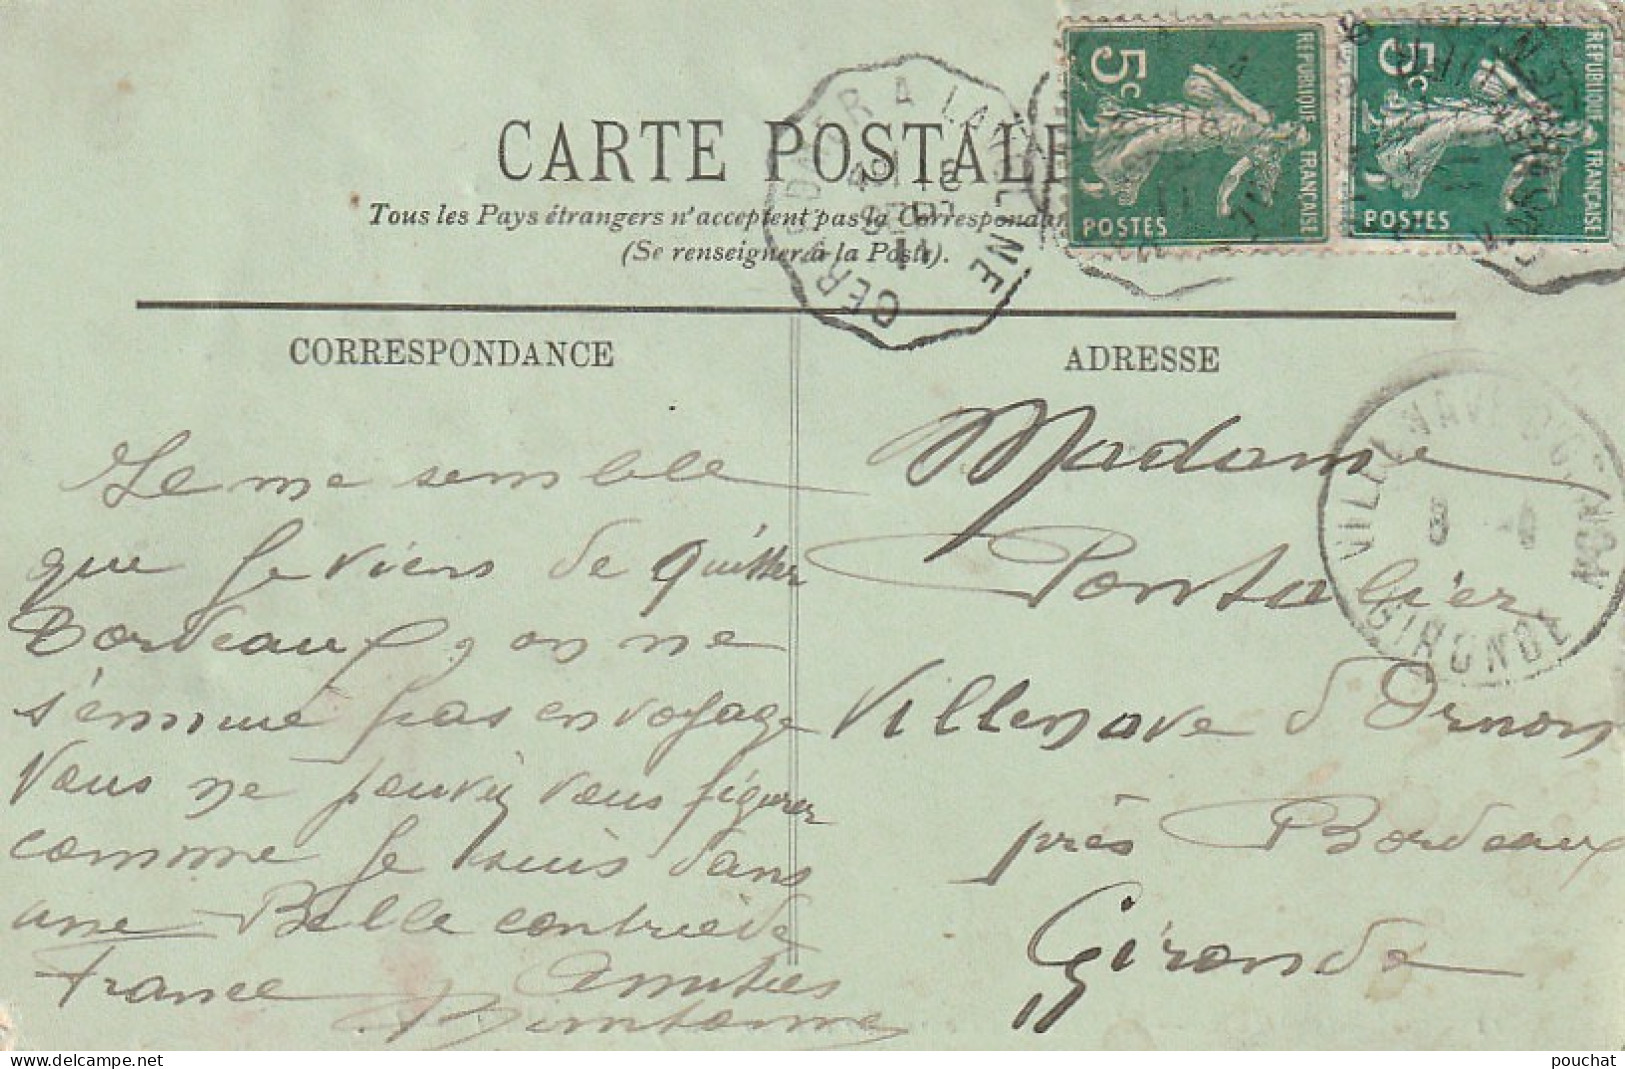 CARTE POSTALE
Tous les Pays étrangers n'acceptent pas la Correspondan
(Se renseigner à la Poste).
CORRESPONDANCE
ADRESSE
5c
REPUBLIQUE FRANÇAISE
POSTES
5c
REPUBLIQUE FRANÇAISE
POSTES
A LA
11
VILLENAVE D'ORNON
GIRONDE
me semble
que je viens de quitter
Bordeaux, on ne
s'ennuie pas en voyage
Vous ne pouvez vous figurer
comme je suis dans
une Belle contrie de
France Amities
Madame
Pontalier
Villenave d'Ornon
près Bordeaux
Gironde
pouchat